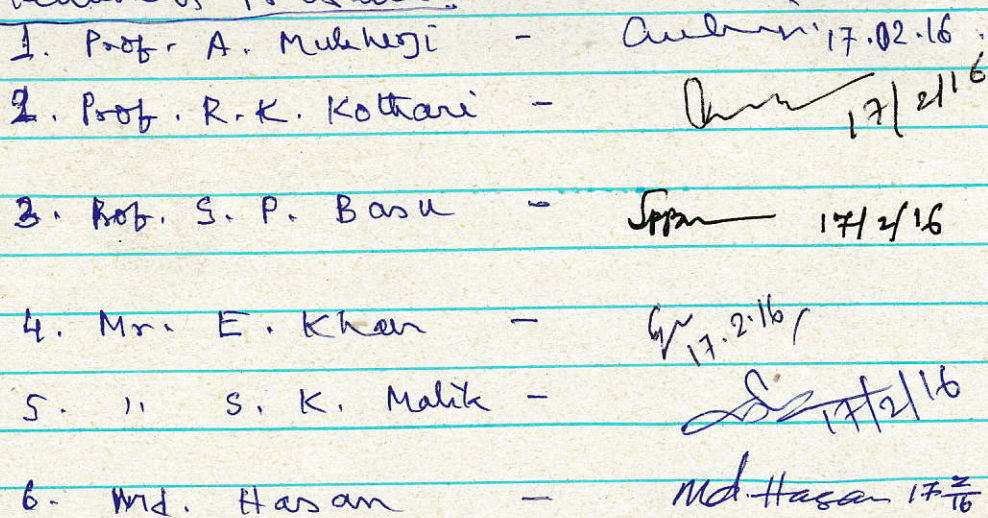 1. Prof. A. Mukherji - 17.02.16.
2. Prof. R.K. Kothari - 17/2/16
3. Prof. S. P. Basu - 17/2/16
4. Mr. E. Khan - 17.2.16
5. " S. K. Malik - 17/2/16
6. Md. Hasan - Md. Hasan 17 2/16